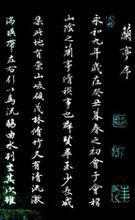 蘭亭序
永和九年歲在癸丑暮春之初會于會稽
山陰之蘭亭脩禊事也群賢畢至少長咸
集此地有崇山峻領茂林脩竹又有清流激
湍暎帶左右引以為流觴曲水列坐其次雖